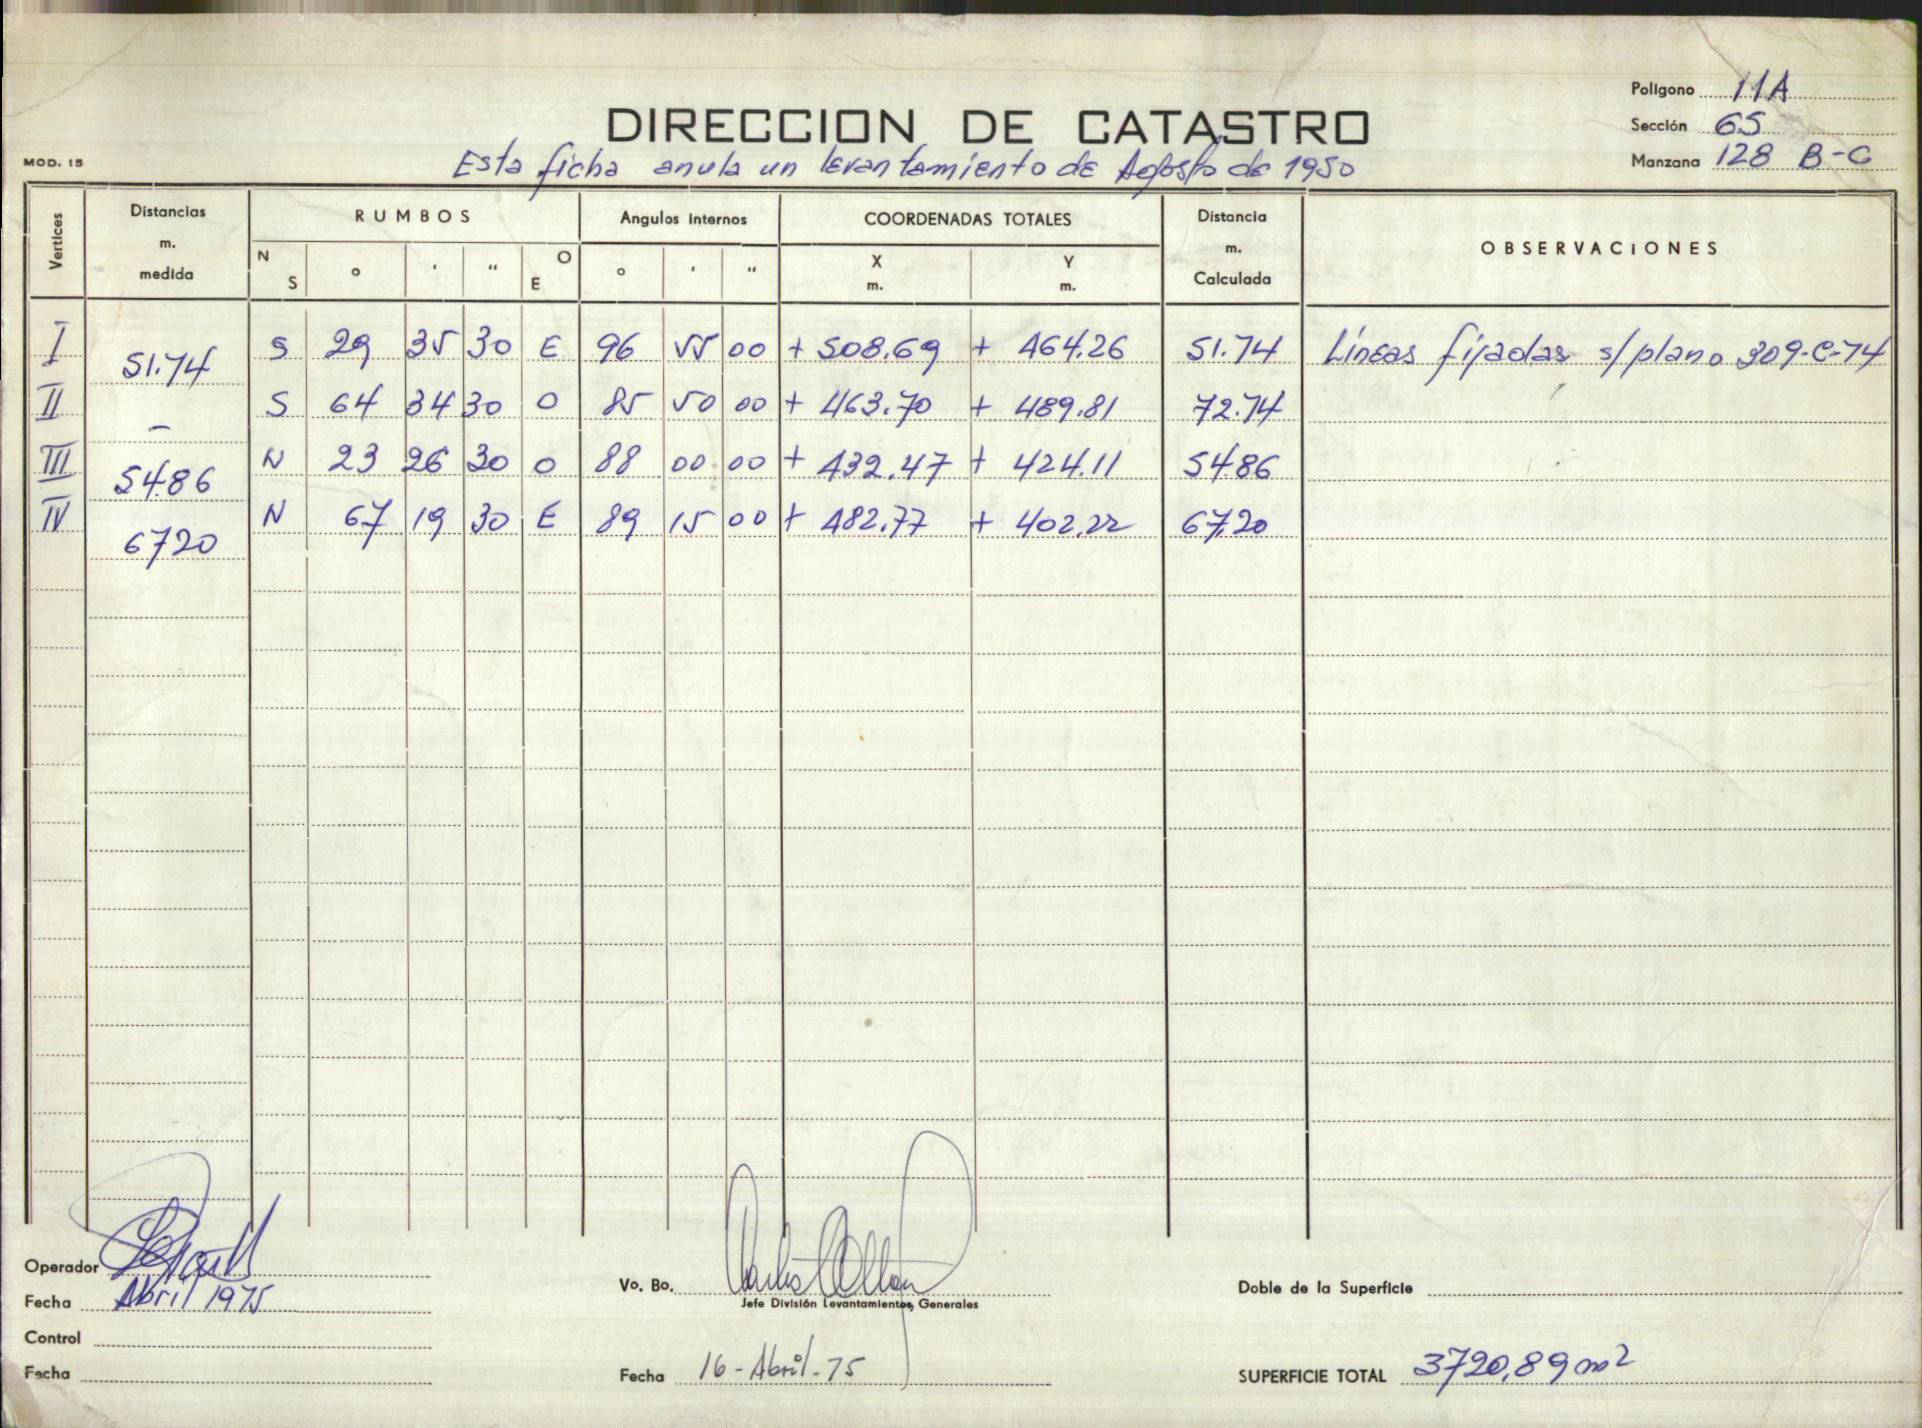 Polígono 11A
DIRECCION DE CATASTRO
Sección 65
MOD. 15
Esta ficha anula un levantamiento de Agosto de 1950
Manzana 128 B-C
Vertices Distancias m. medida RUMBOS Angulos internos COORDENADAS TOTALES Distancia m. Calculada OBSERVACIONES
N S ° ' " O E ° ' " X m. Y m.
I S 29 35 30 E 96 55 00 + 508.69 + 464.26 51.74 Líneas fijadas s/plano 309-C-74
51.74
II S 64 34 30 O 85 50 00 + 463.70 + 489.81 72.74
–
III N 23 26 30 O 88 00 00 + 432.47 + 424.11 54.86
54.86
IV N 67 19 30 E 89 15 00 + 482.77 + 402.22 67.20
67.20
Operador
Fecha Abril 1975
Control
Fecha
Vo. Bo.
Jefe División Levantamientos Generales
Fecha 16-Abril-75
Doble de la Superficie
SUPERFICIE TOTAL 3720,89 m2